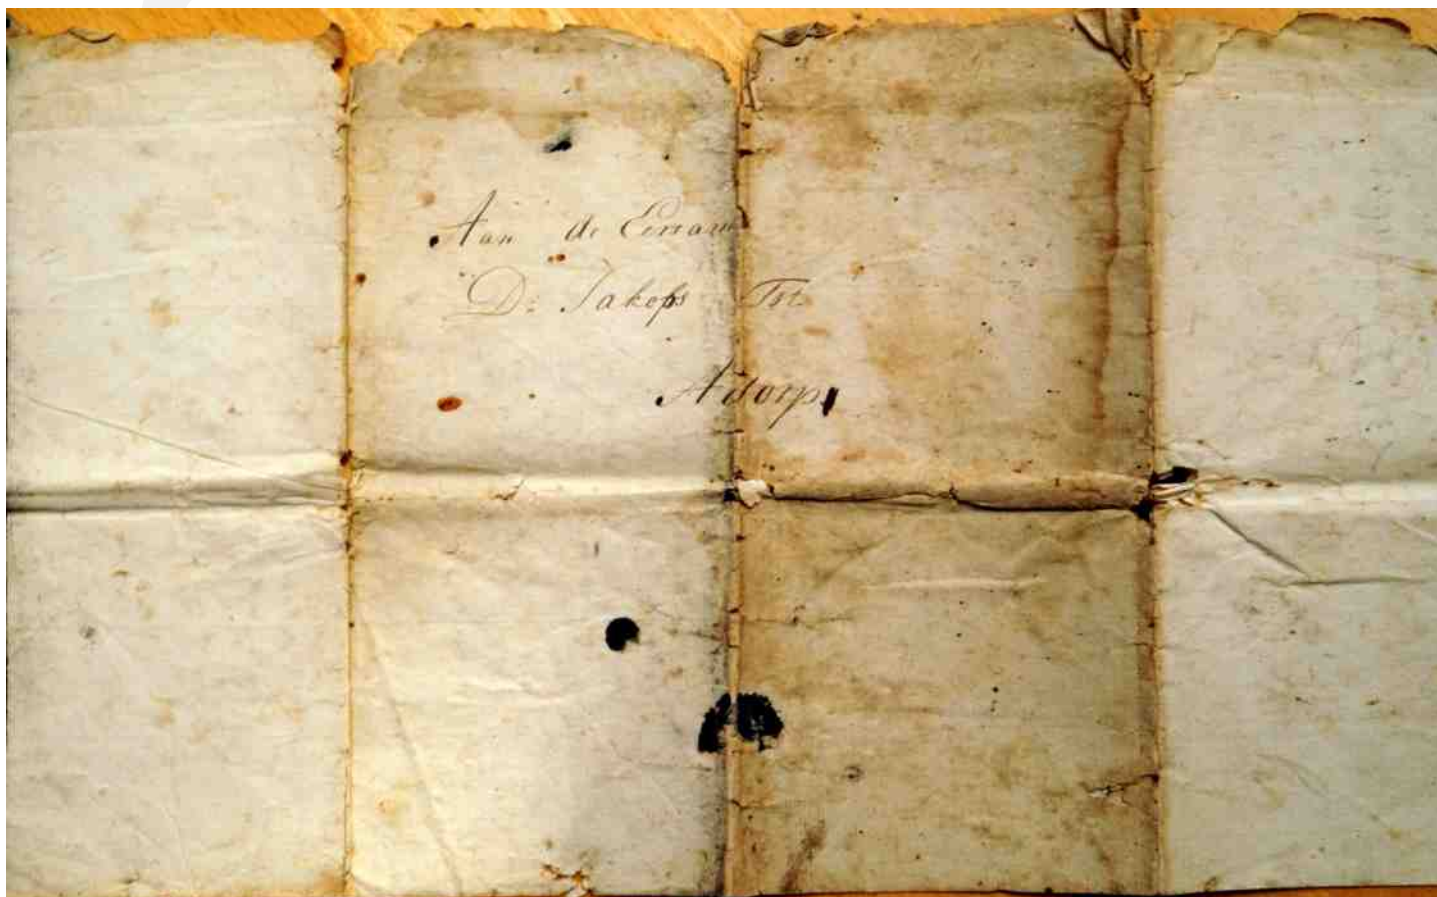 Aan de Eersam
D: Jakops Tot
Adorp